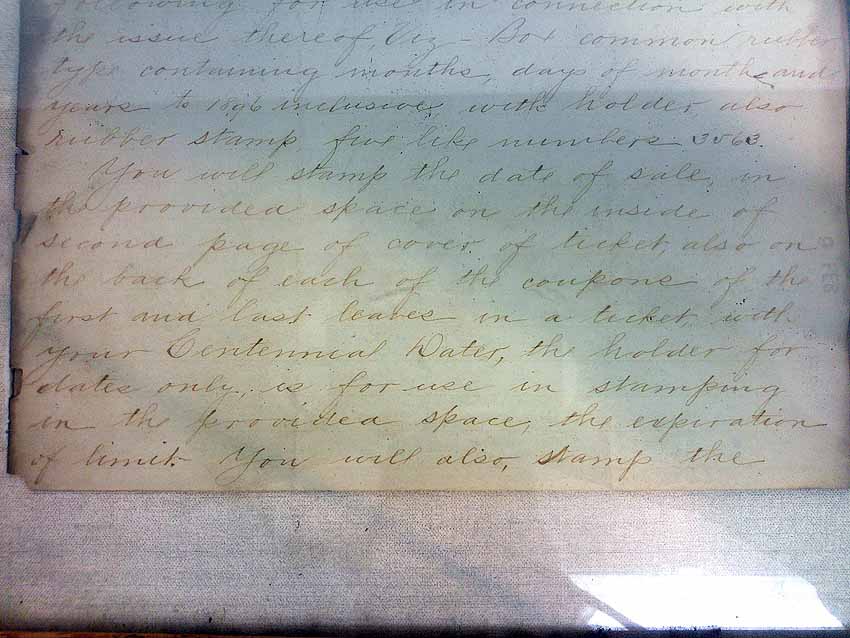 following for use in connection with
the issue thereof, Viz - Box common rubber
type containing months, days of month and
years to 1896 inclusive, with holder, also
rubber stamp, five like numbers 3563.
You will stamp the date of sale, in
the provided space on the inside of
second page of cover of ticket, also on
the back of each of the coupons of the
first and last leaves in a ticket, with
your Centennial Dater, the holder for
dates only, is for use in stamping
in the provided space, the expiration
of limit. You will also, stamp the